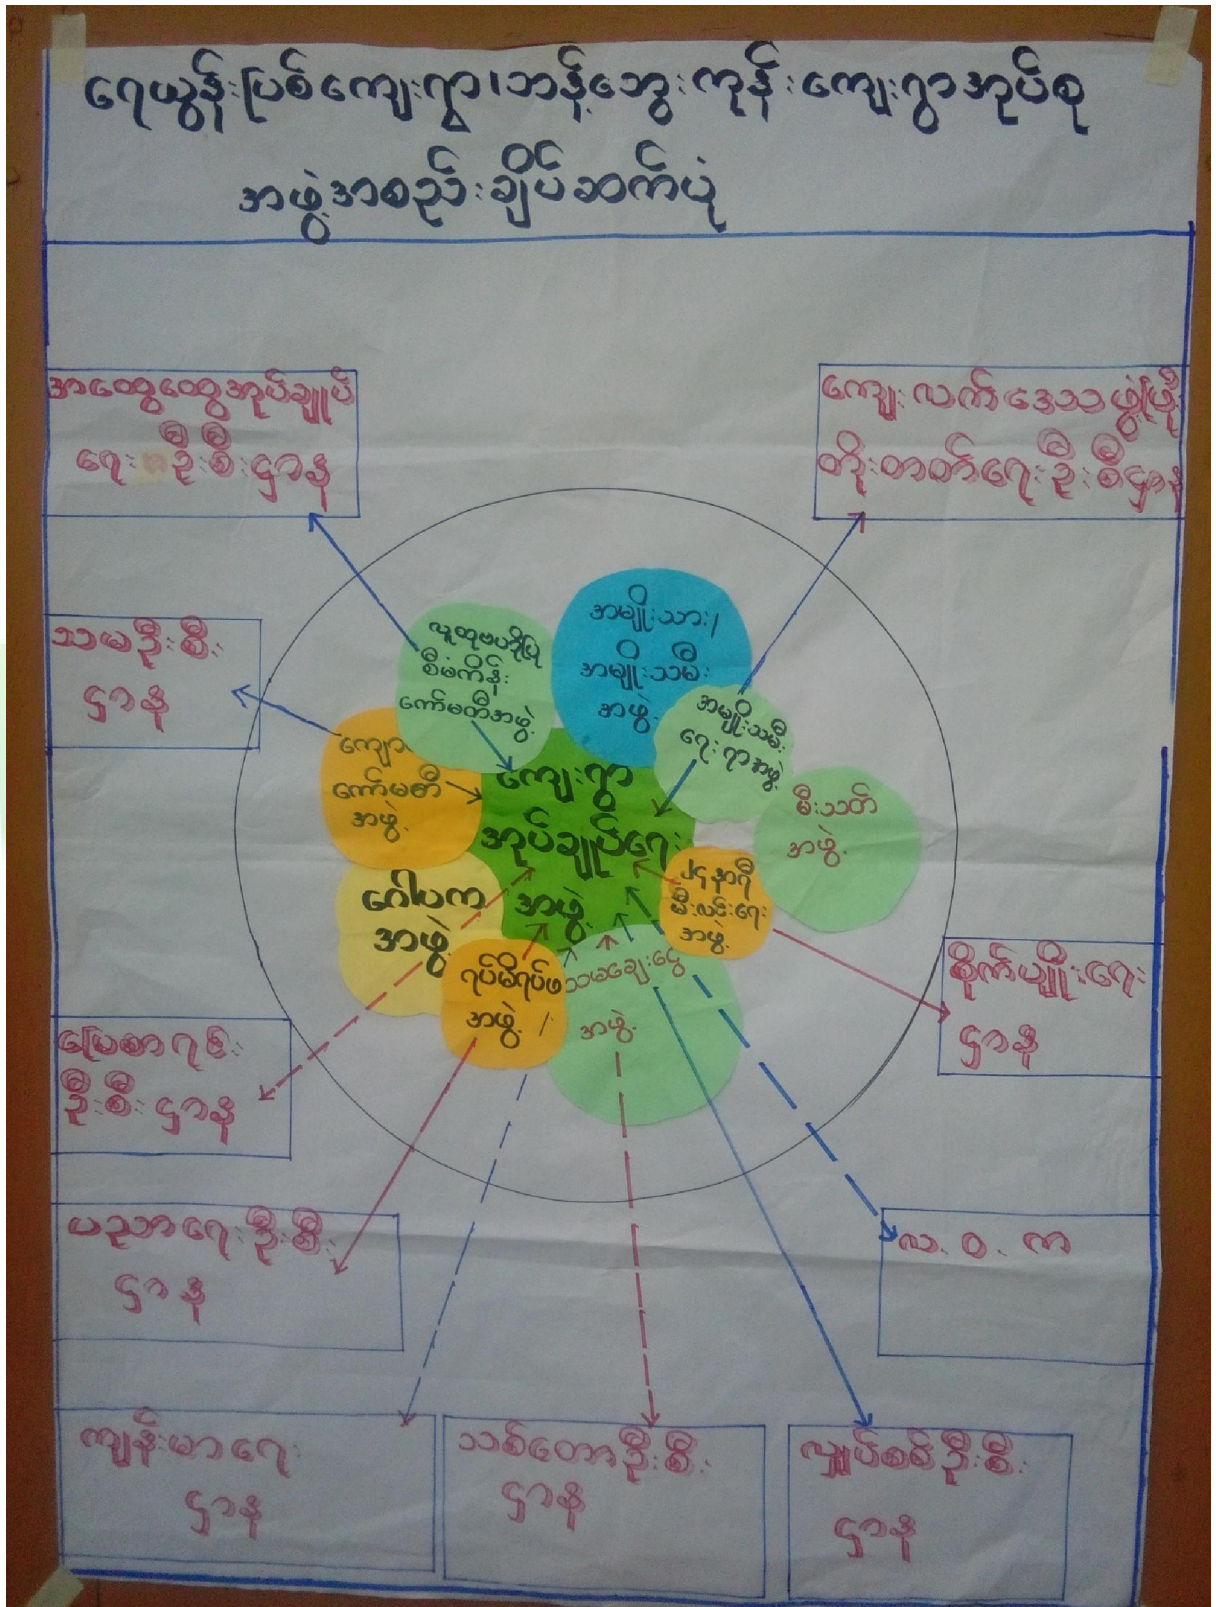 ရေယွန်းပြစ်ကျေးရွာ၊ဘန့်ဘွေးကုန်းကျေးရွာအုပ်စု
အဖွဲ့အစည်းချိပ်ဆက်ပုံ
အထွေထွေအုပ်ချုပ်
ရေးဦးစီးဌာန
ကျေးလက်ဒေသဖွံ့ဖြိုး
တိုးတတ်ရေးဦးစီးဌာန
သမဦးစီး
ဌာန
လူထုဗဟိုပြု
စီမံကိန်း
ကော်မတီအဖွဲ့
အမျိုးသား/
အမျိုးသမီး
အဖွဲ့
အမျိုးသမီး
ရေးရာအဖွဲ့
မီးသတ်
အဖွဲ့
ကျော
ကော်မတီ
အဖွဲ့
ကျေးရွာ
အုပ်ချုပ်ရေး
အဖွဲ့
ဂေါပက
အဖွဲ့
၂၄နာရီ
မီးလင်းရေး
အဖွဲ့
ရပ်မိရပ်ဖ
အဖွဲ့
သမချေးငွေ
အဖွဲ့
စိုက်ပျိုးရေး
ဌာန
မြေစာရင်း
ဦးစီးဌာန
ပညာရေးဦးစီး
ဌာန
လ.ဝ.က
ကျန်းမာရေး
ဌာန
သစ်တောဦးစီး
ဌာန
လျှပ်စစ်ဦးစီး
ဌာန